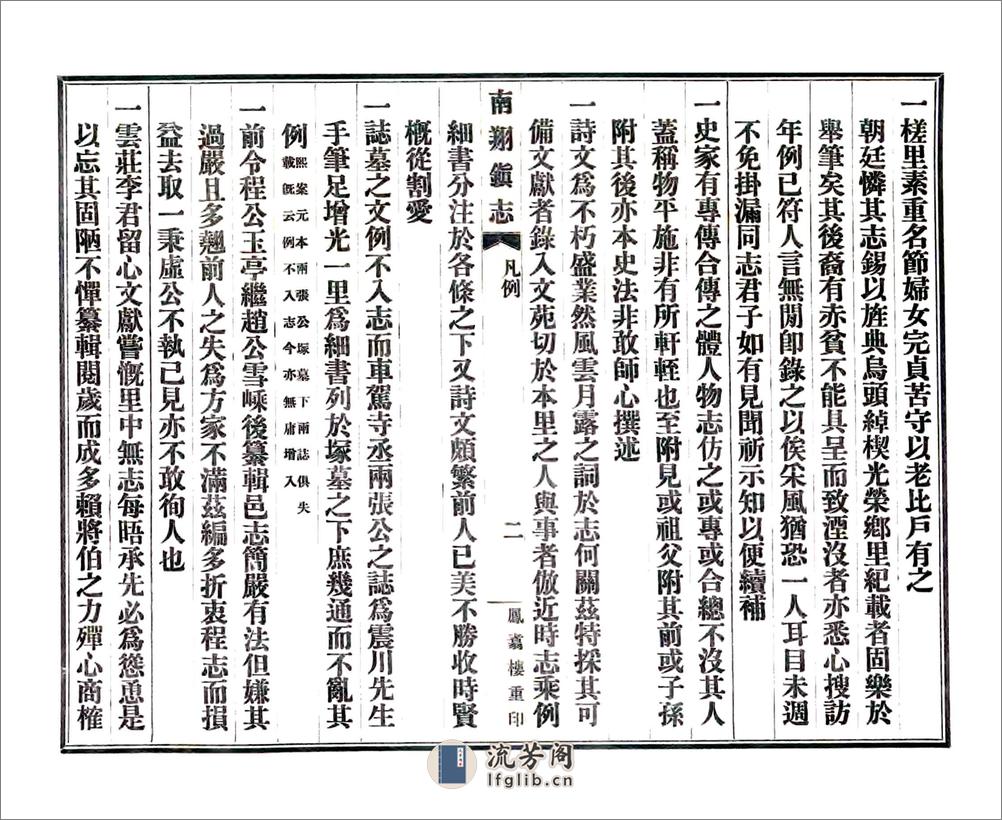 一槎里素重名節婦女完貞苦守以老比戶有之
朝廷憐其志錫以旌典烏頭綽楔光榮鄉里紀載者固樂於
舉筆矣其後裔有赤貧不能具呈而致湮沒者亦悉心搜訪
年例已符人言無閒卽錄之以俟采風猶恐一人耳目未週
不免掛漏同志君子如有見聞祈示知以便續補
一史家有專傳合傳之體人物志仿之或專或合總不沒其人
蓋稱物平施非有所軒輊也至附見或祖父附其前或子孫
附其後亦本史法非敢師心撰述
一詩文爲不朽盛業然風雲月露之詞於志何關茲特採其可
備文獻者錄入文苑切於本里之人與事者倣近時志乘例
南翔鎭志
凡例
二
鳳翥樓重印
細書分注於各條之下又詩文頗繁前人已美不勝收時賢
槪從割愛
一誌墓之文例不入志而車駕寺丞兩張公之誌爲震川先生
手筆足增光一里爲細書列於塚墓之下庶幾通而不亂其
例熙案元本兩張公塚墓下兩誌俱失
載旣云例不入志今亦無庸增入
一前令程公玉亭繼趙公雪嵊後纂輯邑志簡嚴有法但嫌其
過嚴且多翹前人之失爲方家不滿茲編多折衷程志而損
益去取一秉虛公不執己見亦不敢徇人也
一雲莊李君留心文獻嘗慨里中無志每晤承先必爲慫恿是
以忘其固陋不憚纂輯閱歲而成多賴將伯之力殫心商榷
流芳阁
lfglib.cn